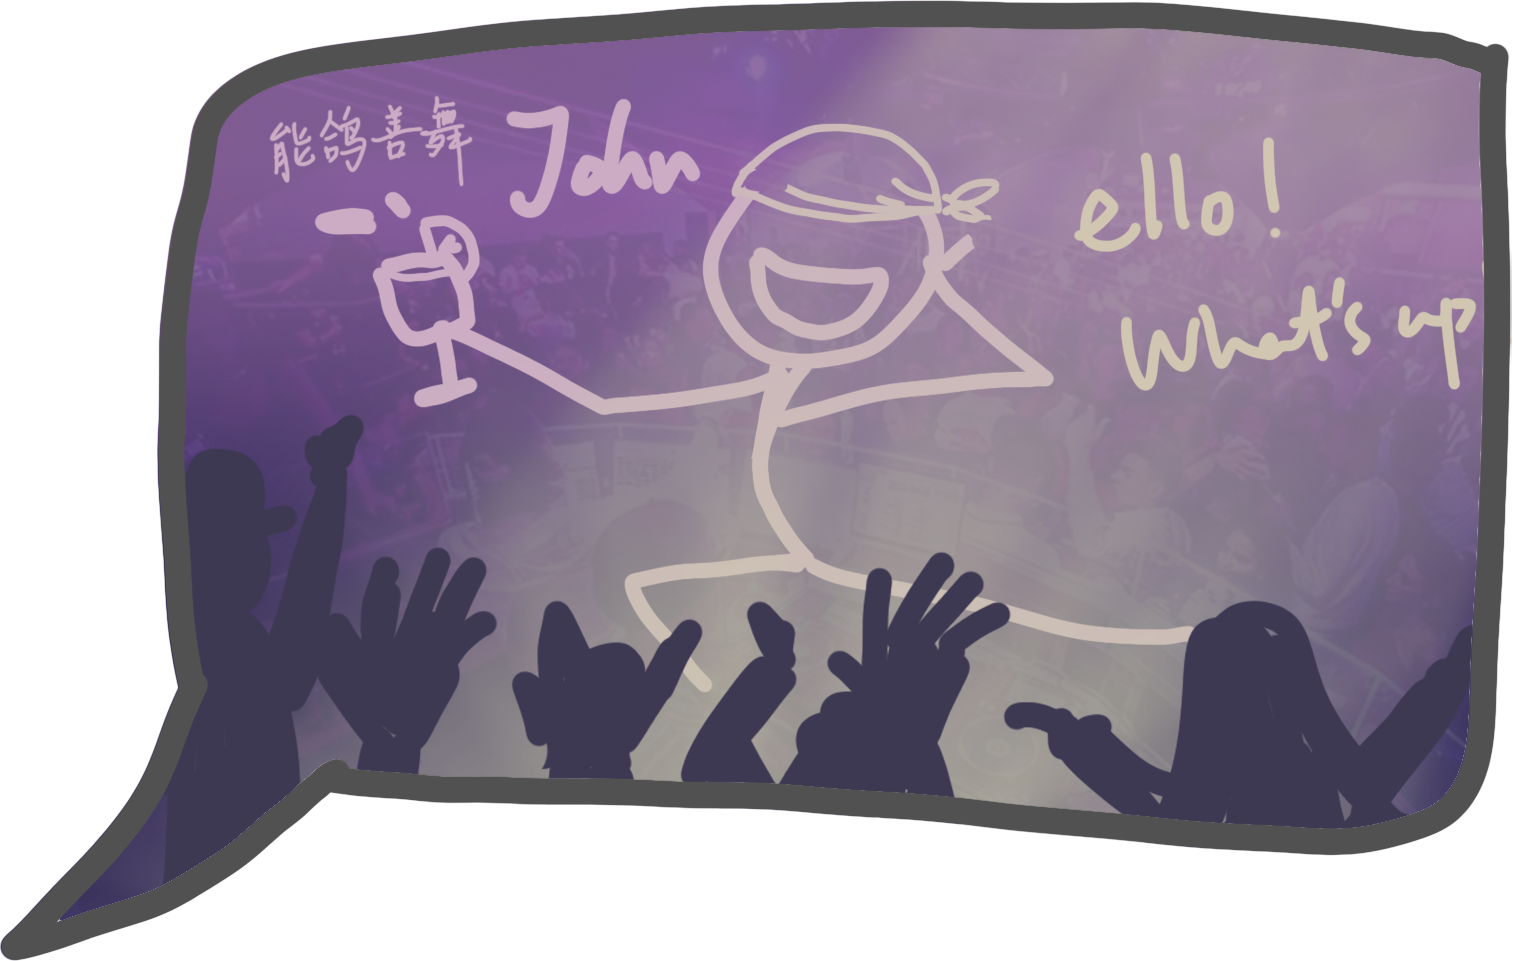 能鸽善舞
John
ello!
What's up